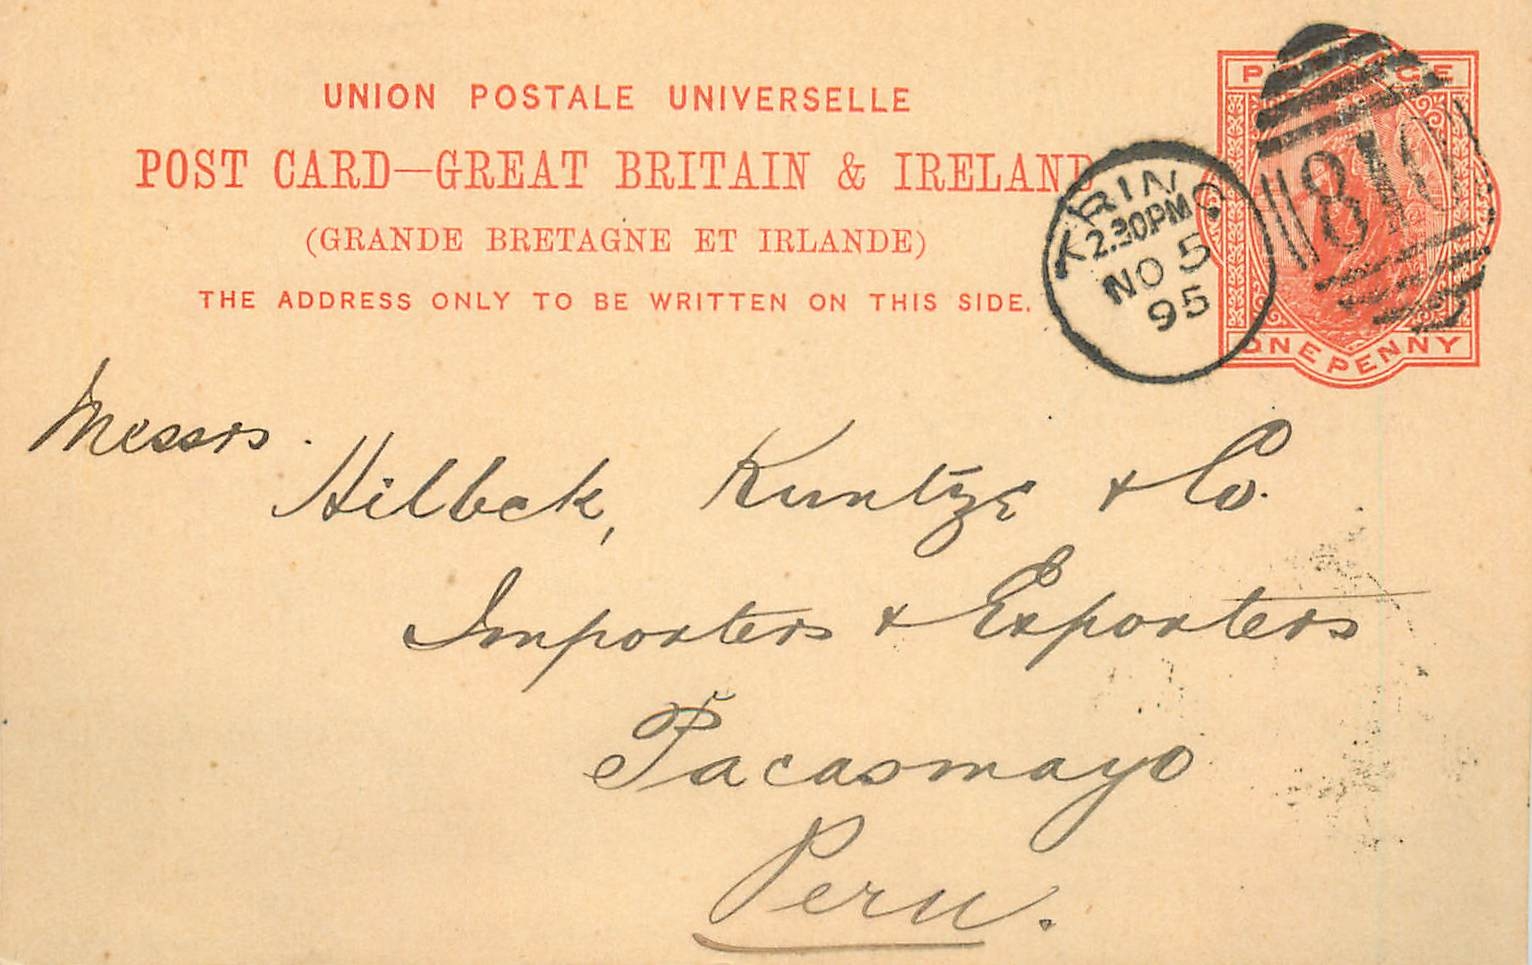 UNION POSTALE UNIVERSELLE
POST CARD—GREAT BRITAIN & IRELAND
(GRANDE BRETAGNE ET IRLANDE)
THE ADDRESS ONLY TO BE WRITTEN ON THIS SIDE.
POSTAGE
ONE PENNY
TRING
2.30PM
NO 5
95
810
Messrs.
Hilbck, Kuntze & Co.
Importers & Exporters
Pacasmayo
Peru.